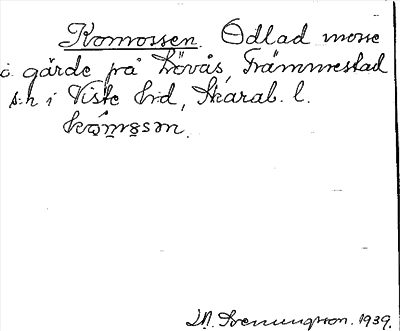 Komossen. Odlad mosse
å gärde på Lövås, Främmestad
s:n i Viste hd, Skarab. l.
kọ̀mɷsən.
Sveningsson. 1939.